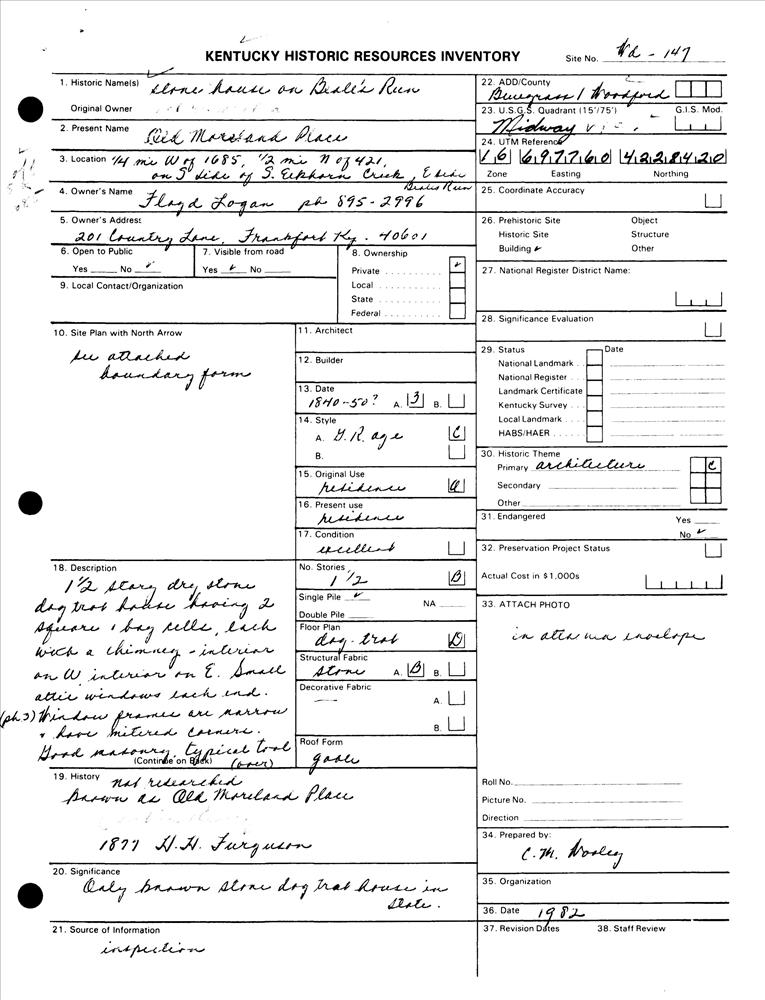 KENTUCKY HISTORIC RESOURCES INVENTORY
Site No. Wd - 147
1. Historic Name(s) Stone house on Beals Run
Original Owner
2. Present Name Old Moreland Place
3. Location 1/4 mi W of 1685, 1/2 mi N of 421,
on S side of S. Elkhorn Creek, E side
Beals Run
4. Owner's Name Floyd Logan ph 895-2996
5. Owner's Address
201 Country Lane, Frankfort Ky. 40601
6. Open to Public
Yes No ✓
7. Visible from road
Yes ✓ No
8. Ownership
Private ✓
Local
State
Federal
9. Local Contact/Organization
10. Site Plan with North Arrow
see attached
boundary form
11. Architect
12. Builder
13. Date
1840-50? A. 3 B.
14. Style
A. G.R. age C
B.
15. Original Use
residence a
16. Present use
residence
17. Condition
excellent
18. Description
1 1/2 story dry stone
dog trot house having 2
square 1 bay cells, each
with a chimney - interior
on W interior on E. Small
attic windows each end.
(ph 3) Window frames are narrow
+ have mitered corners.
Good masonry, typical tool
(Continue on Back) (over)
No. Stories
1 1/2 B
Single Pile ✓
Double Pile NA
Floor Plan
dog-trot D
Structural Fabric
stone A. B B.
Decorative Fabric
— A.
B.
Roof Form
gable
19. History not researched
known as Old Moreland Place
1877 H.H. Furguson
20. Significance
Only known stone dog trot house in
state.
21. Source of Information
inspection
22. ADD/County
Bluegrass / Woodford
23. U.S.G.S. Quadrant (15'/75') G.I.S. Mod.
Midway
24. UTM Reference
16 697760 4228420
Zone Easting Northing
25. Coordinate Accuracy
26. Prehistoric Site Object
Historic Site Structure
Building ✓ Other
27. National Register District Name:
28. Significance Evaluation
29. Status Date
National Landmark
National Register
Landmark Certificate
Kentucky Survey
Local Landmark
HABS/HAER
30. Historic Theme
Primary architecture C
Secondary
Other
31. Endangered Yes
No ✓
32. Preservation Project Status
Actual Cost in $1,000s
33. ATTACH PHOTO
in envelope
Roll No.
Picture No.
Direction
34. Prepared by:
C.M. Wooley
35. Organization
36. Date 1982
37. Revision Dates 38. Staff Review